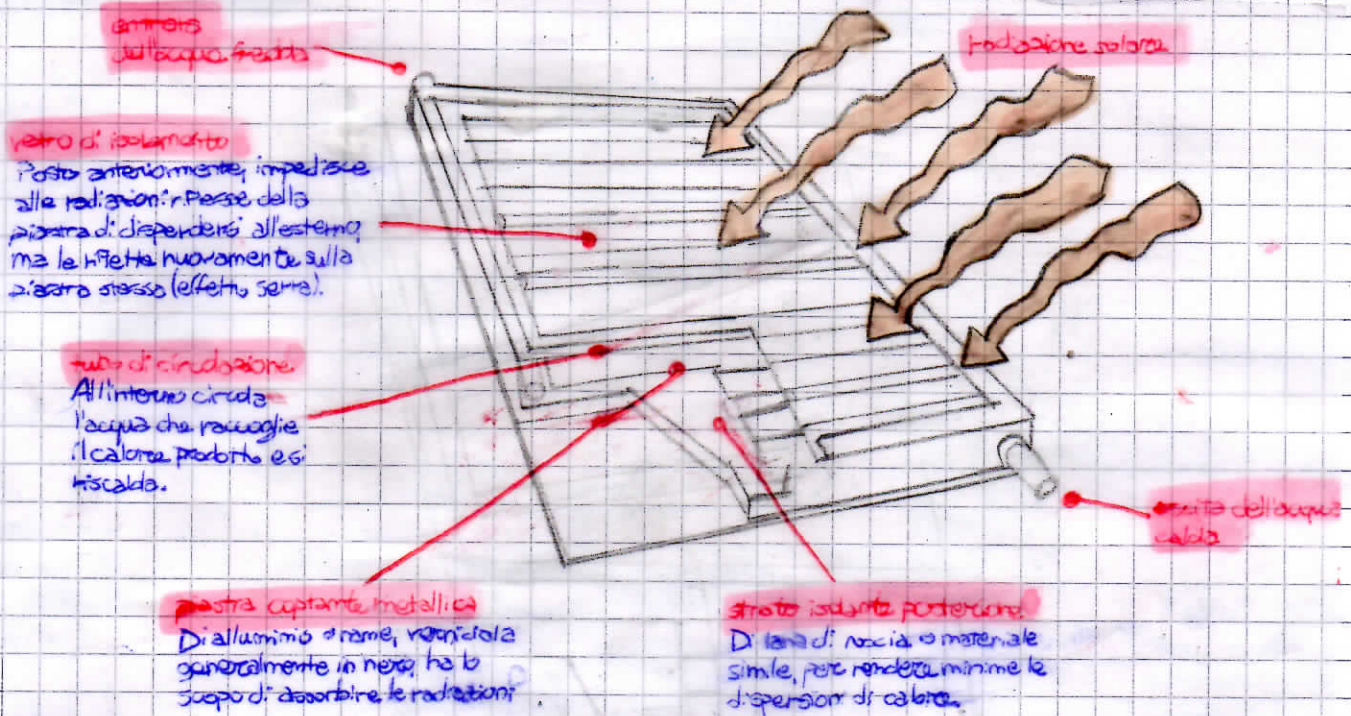 entrata
dell'acqua fredda
radiazione solare
vetro di isolamento
Posto anteriormente, impedisce
alle radiazioni riflesse della
piastra di disperdersi all'esterno,
ma le riflette nuovamente sulla
piastra stessa (effetto serra).
tubo di circolazione
All'interno circola
l'acqua che raccoglie
il calore prodotto e si
riscalda.
uscita dell'acqua
calda
piastra captante metallica
Di alluminio o rame, verniciata
generalmente in nero, ha lo
scopo di assorbire le radiazioni
strato isolante posteriore
Di lana di roccia o materiale
simile, per rendere minime le
dispersioni di calore.